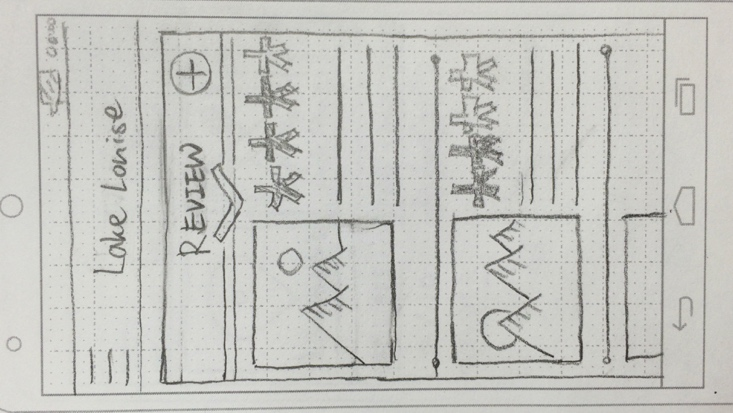 Lake Louise
REVIEW